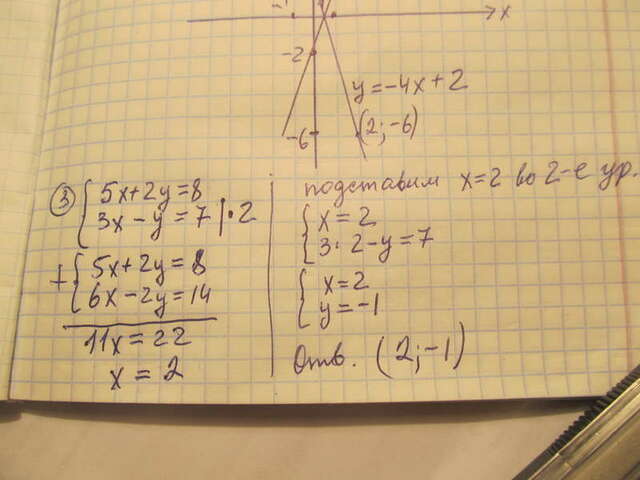 -1
x
-2
y=-4x+2
-6
(2;-6)
③ {5x+2y=8
3x-y=7|·2
+{5x+2y=8
6x-2y=14
11x=22
x=2
подставим x=2 во 2-е ур.
{x=2
3·2-y=7
{x=2
y=-1
Отв. (2;-1)